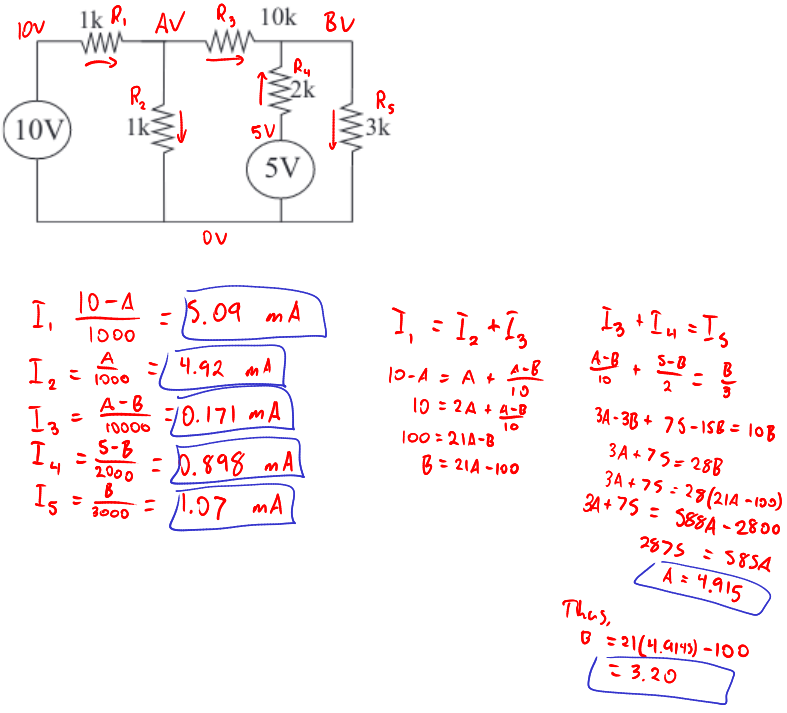 10V 1k R₁ AV R₃ 10k BV
R₂ R₄ R₅
10V 1k 5V 2k 3k
5V
0V
I₁ (10-A)/1000 = 5.09 mA
I₂ = A/1000 = 4.92 mA
I₃ = (A-B)/10000 = 0.171 mA
I₄ = (5-B)/2000 = 0.898 mA
I₅ = B/3000 = 1.07 mA
I₁ = I₂ + I₃
10-A = A + (A-B)/10
10 = 2A + (A-B)/10
100 = 21A-B
B = 21A-100
I₃ + I₄ = I₅
(A-B)/10 + (5-B)/2 = B/3
3A-3B + 75-15B = 10B
3A+75 = 28B
3A+75 = 28(21A-100)
3A+75 = 588A-2800
2875 = 585A
A = 4.915
Thus,
B = 21(4.9145)-100
= 3.20